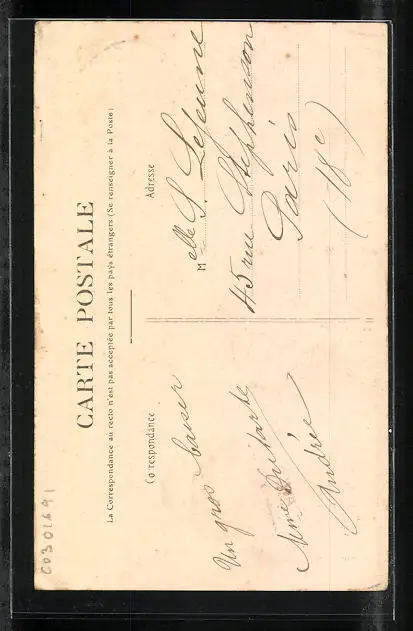 CARTE POSTALE
La Correspondance au recto n'est pas acceptée par tous les pays étrangers (Se renseigner à la Poste)
Correspondance
Adresse
Un gros baiser
Andrée
Melle S. Lejeune
45 rue Stephenson
Paris
(18e)
C0301691